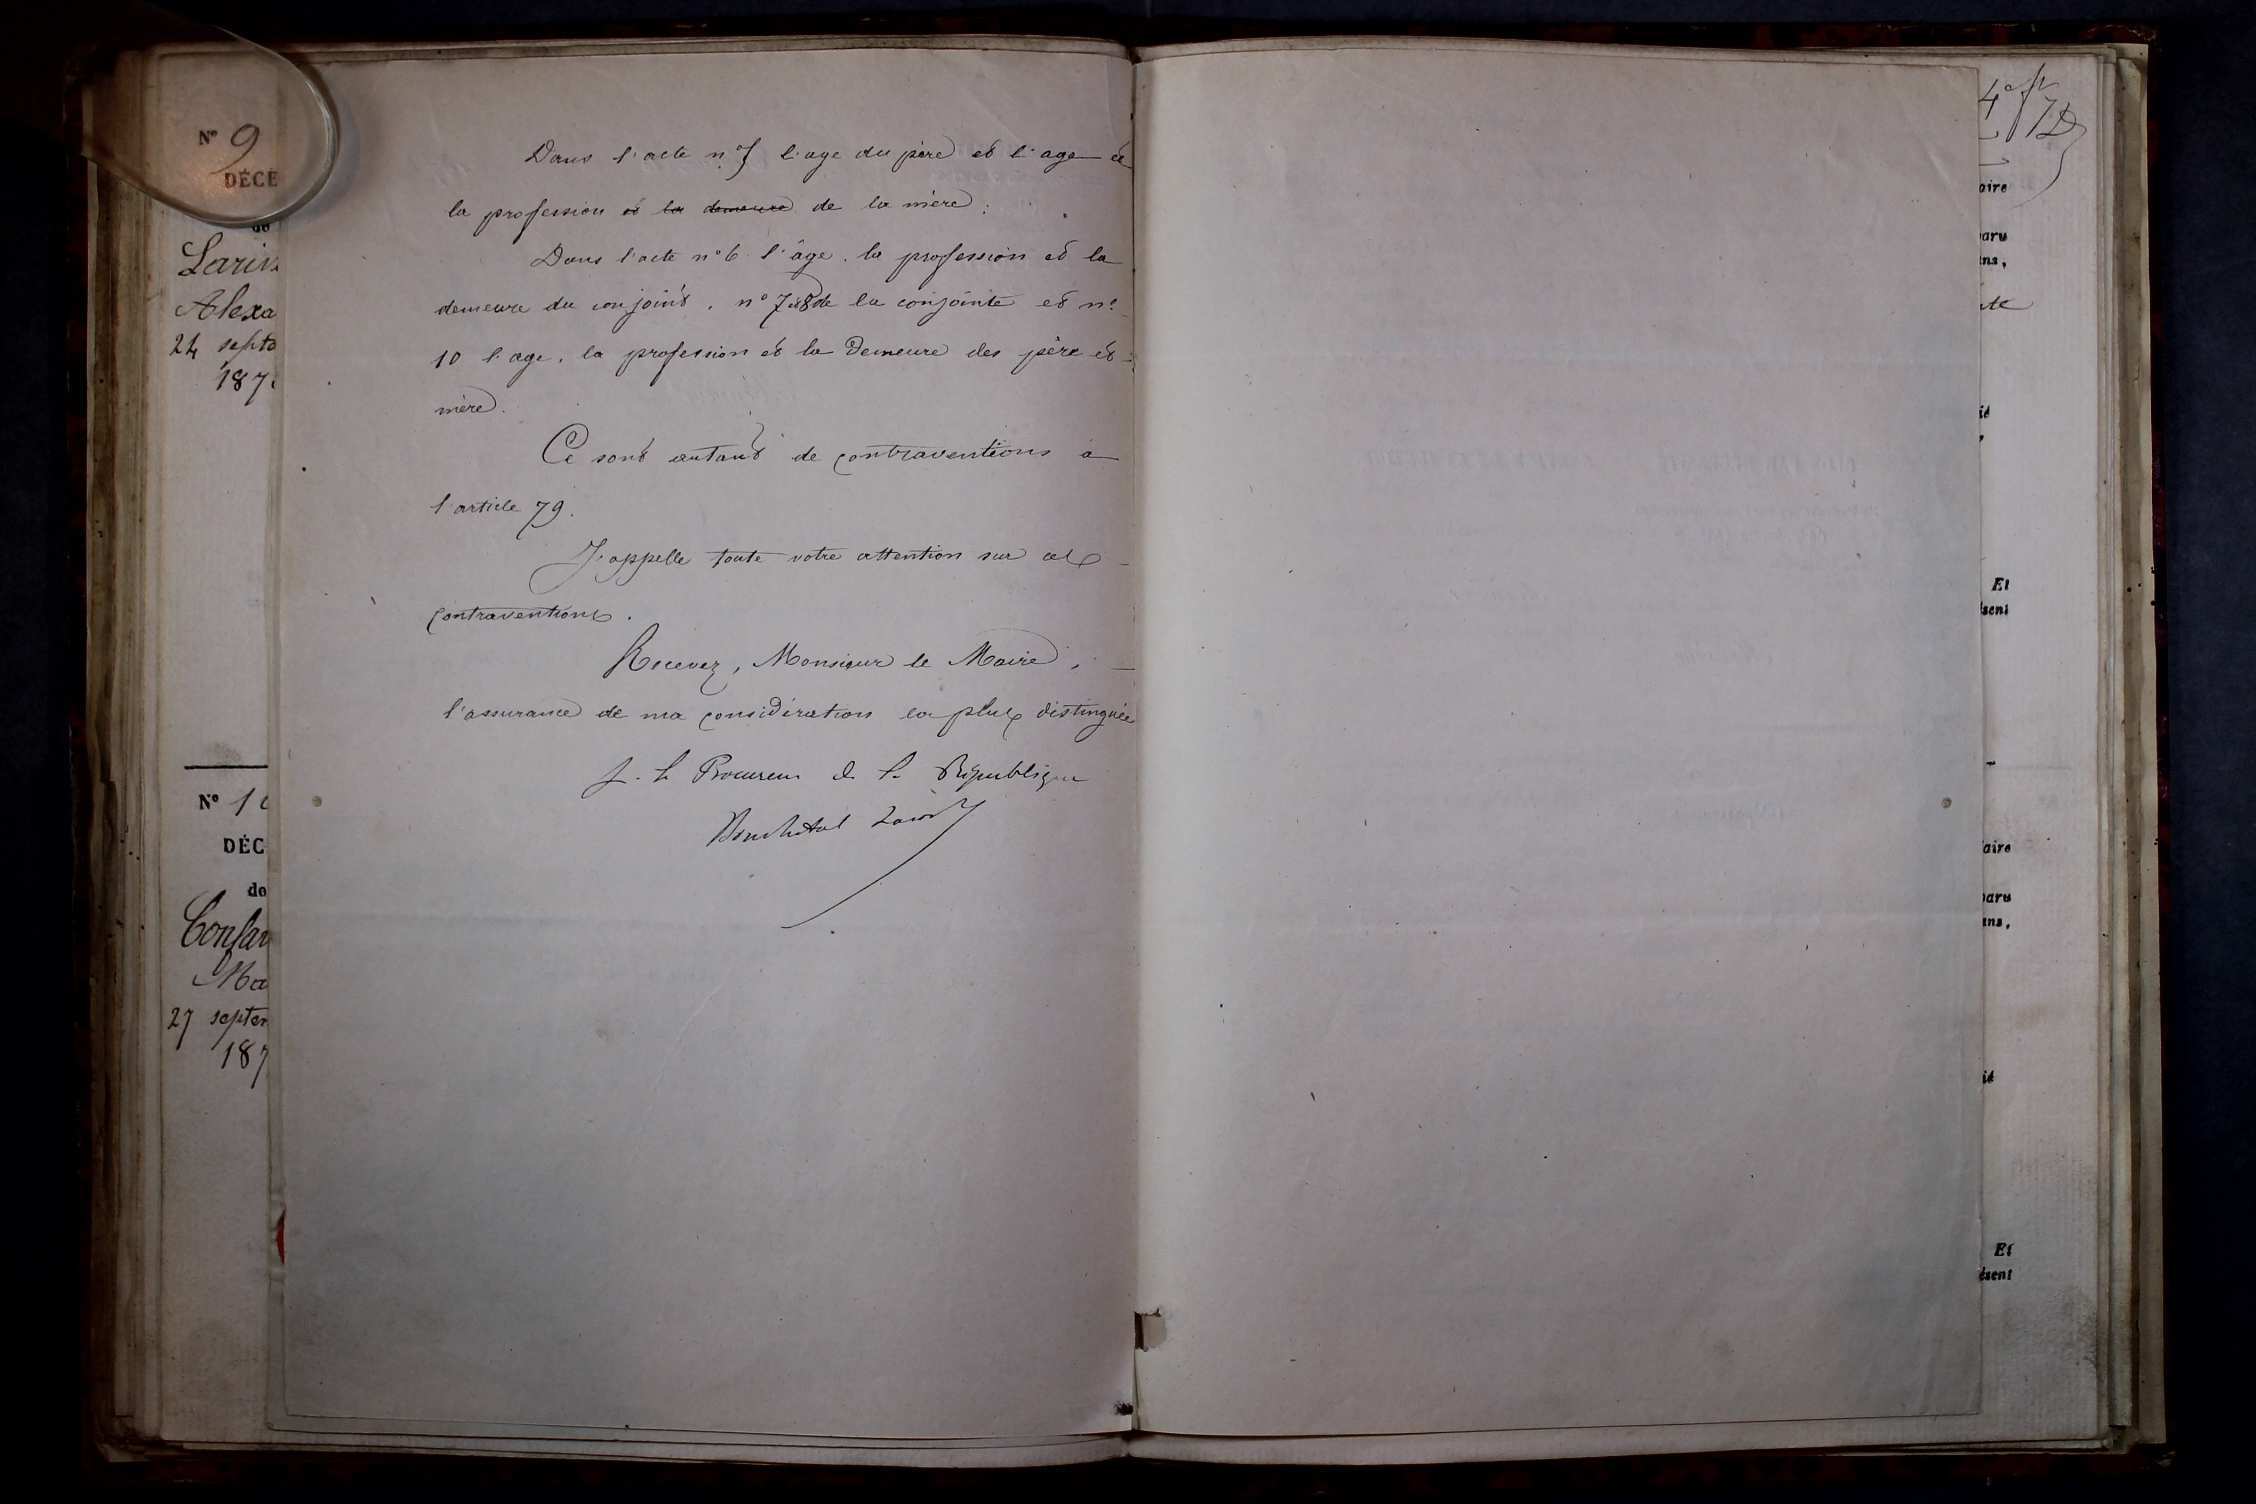 N° 9
DÉCÈ
de
Larin
Alexa
24 septe
187
N° 10
DÉC
de
Confan
Ma
27 septem
187
Dans l'acte n° 5 l'age du père et l'age et
la profession et la demeure de la mère ;
Dans l'acte n° 6 l'âge, la profession et la
demeure du conjoint, n° 7 et 8 de la conjointe et n°
10 l'age, la profession et la demeure des père et
mère.
Ce sont autant de contraventions à
l'article 79.
J'appelle toute votre attention sur ces
contraventions.
Recevez, Monsieur le Maire,
l'assurance de ma considération la plus distinguée
p. le Procureur de la République
4e
aire
aru
ns,
Et
sent
aire
aru
ns,
Et
ésent